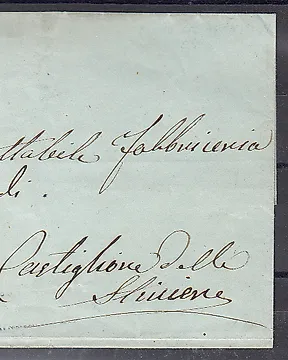 ttabile Fabbriceria
di
Castiglione delle
Stiviere